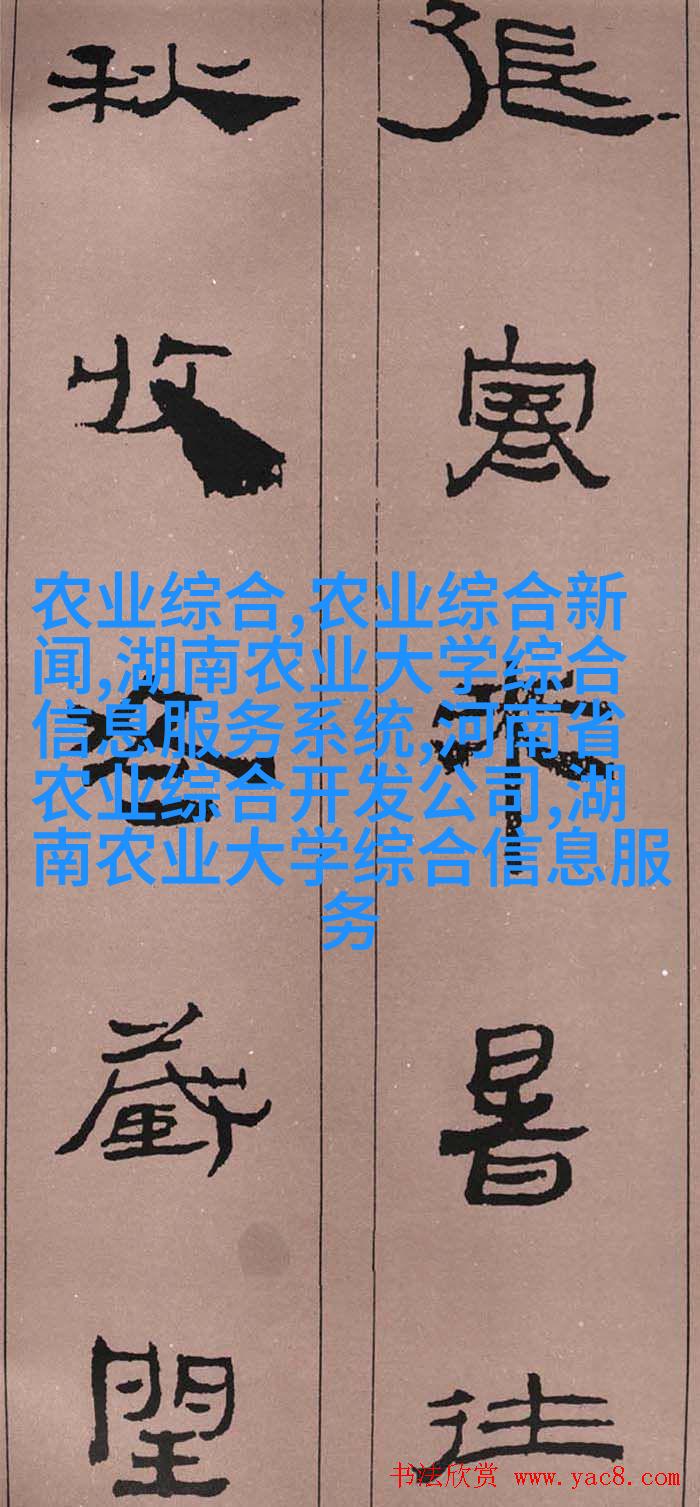 張寒來暑往
秋收冬藏閏
农业综合,农业综合新
闻,湖南农业大学综合
信息服务系统,河南省
农业综合开发公司,湖
南农业大学综合信息服
务
书法欣赏 www.yac8.com